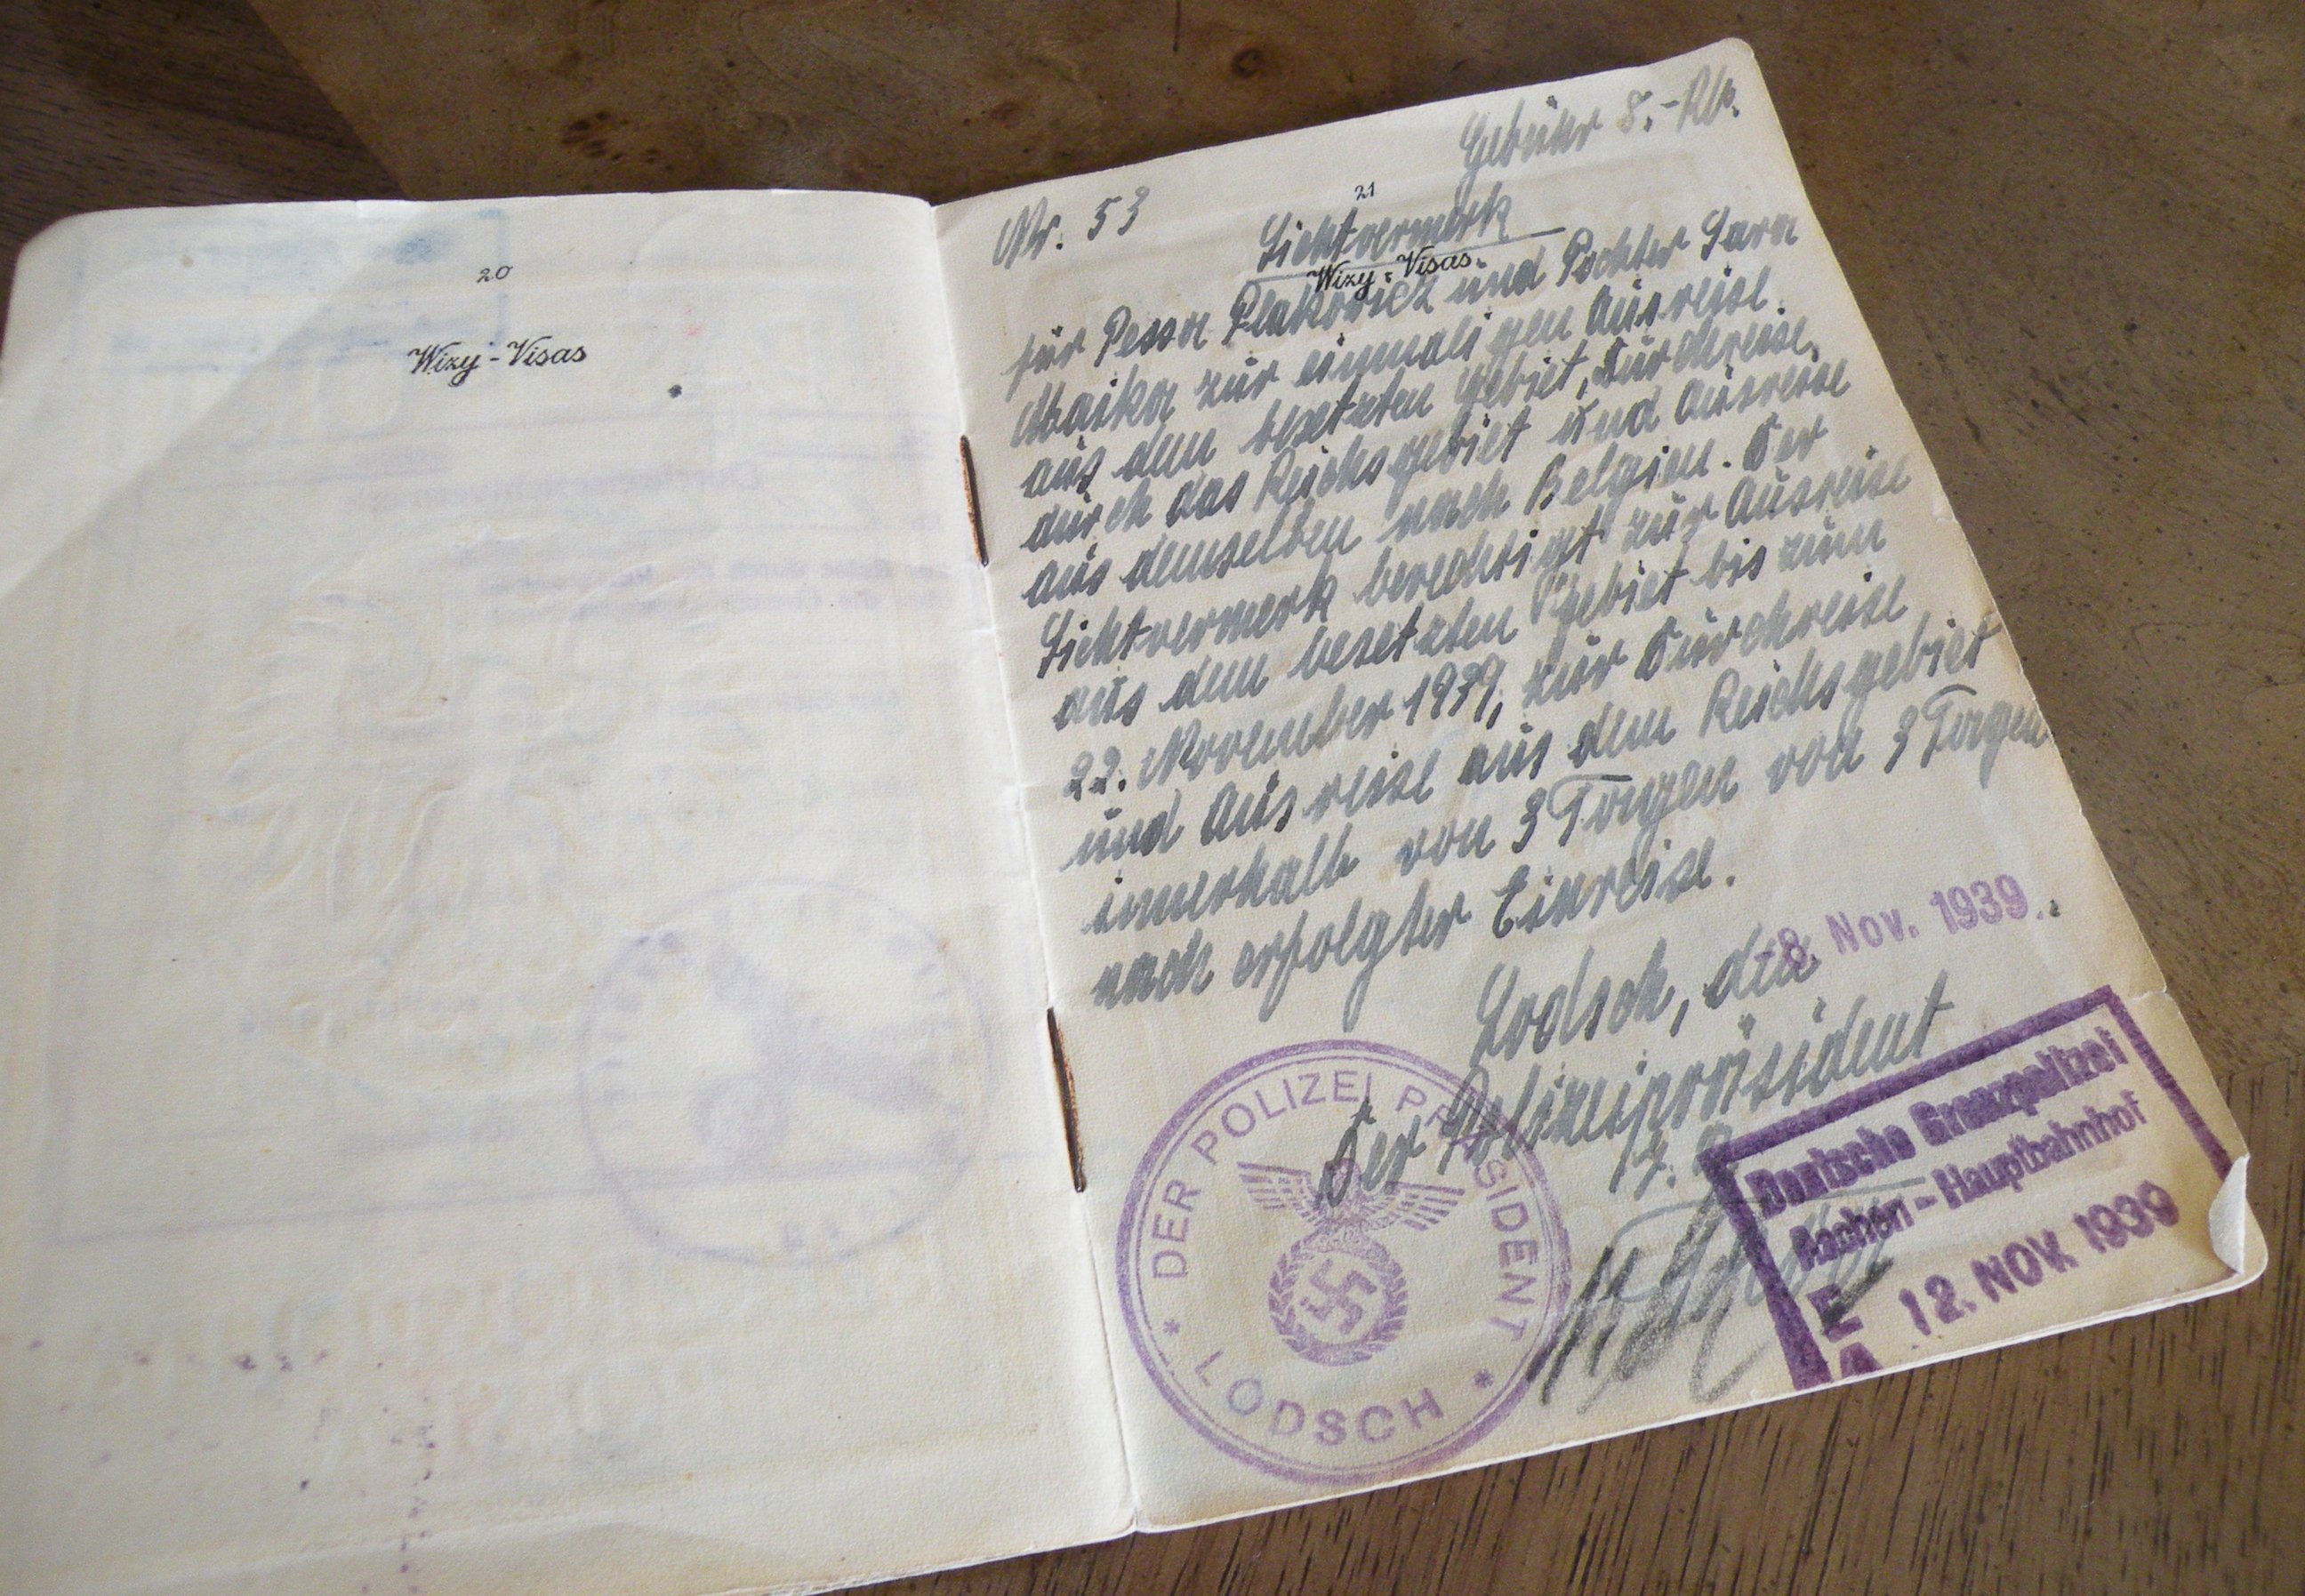 20
Wizy - Visas
Gebühr 8.- RM.
Nr. 53
21
Sichtvermerk
Wizy - Visas
für Pessa Plakowicz und Tochter Sara
zur einmaligen Ausreise
aus dem besetzten Gebiet, Durchreise
durch das Reichsgebiet und Ausreise
aus demselben nach Belgien. Der
Sichtvermerk berechtigt zur Ausreise
aus dem besetzten Gebiet bis zum
22. November 1939, zur Durchreise
und Ausreise aus dem Reichsgebiet
innerhalb von 3 Tagen von 3 Tagen
nach erfolgter Einreise.
Lodsch, den 8. Nov. 1939
Der Polizeipräsident
DER POLIZEI PRÄSIDENT
* LODSCH *
Deutsche Grenzpolizei
Aachen - Hauptbahnhof
E
A 12. NOV. 1939